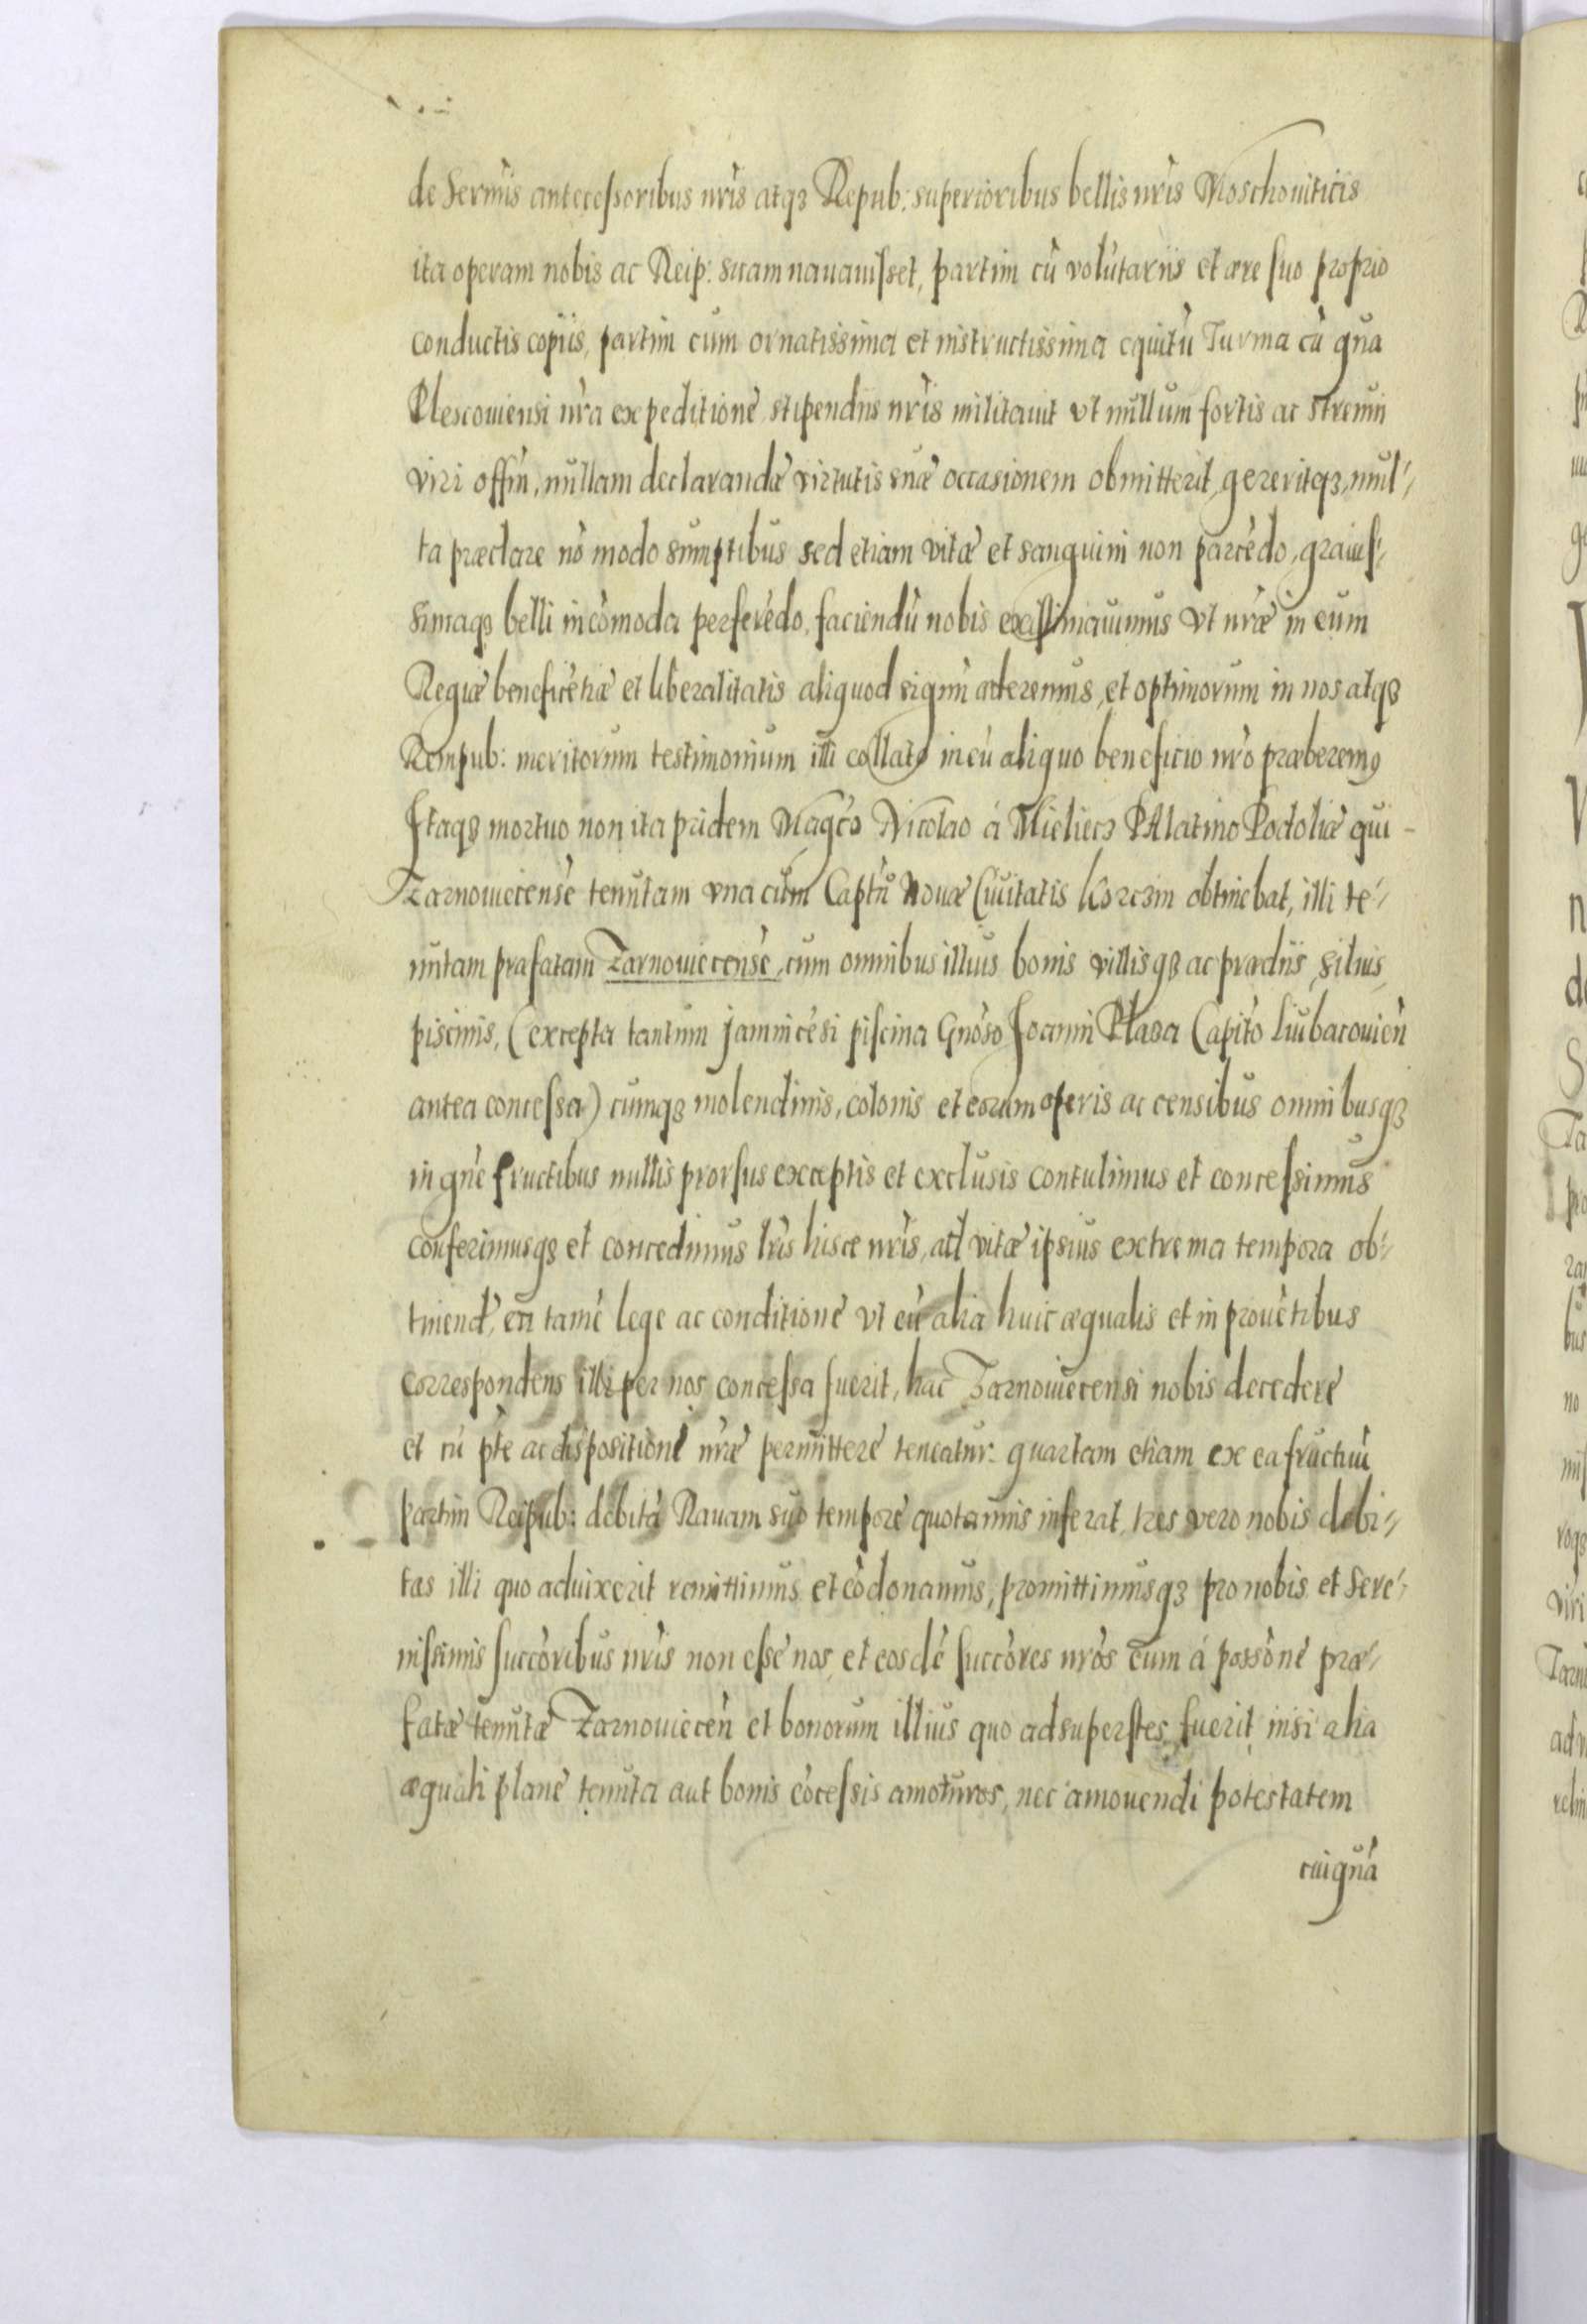 de Sermis antecessoribus nris atqȝ Repub: superioribus bellis nris Moschouiticis
ita operam nobis ac Reip: suam nauauisset, partim cũ volũtariis et ære suo proprio
conductis copiis, partim cum ornatissima et instructissima equitũ Turma cũ qua
Plescouiensi nrã expeditione stipendiis nris militauit vt nullum fortis ac strenui
viri offin, nullam declarandæ virtutis suæ occasionem obmitterit, gereritqȝ, mul-
ta præclare nõ modo sumptibus sed etiam vitæ et sanguini non parcẽdo, grauis-
simaqȝ belli incõmoda perferẽdo, faciendũ nobis existimauimus vt nræ in eum
Regiæ beneficẽtiæ et liberalitatis aliquod signũ æderemus, et optimorum in nos atqȝ
Rempub: meritorum testimonium illi collato in eũ aliquo beneficio nrõ præberemꝯ
Itaqȝ mortuo non ita pridem Magco Nicolao á Mieliecz PAlatino Podoliæ qui -
Zarnouiecense tenutam vna cum Captũ Nouæ Ciuitatis Korczin obtinebat, illi te-
nutam præfatam Zarnouiecense, cum omnibus illius bonis villisqȝ ac prædiis, siluis,
piscinis, (excepta tantum jamnicẽsi piscina Gnoso Joanni Plaza Capito Liubacouien
antea concessa) cumqȝ molendinis, colonis et eorum operis ac censibus omnibusqȝ
in gñe fructibus nullis prorsus exceptis et exclusis contulimus et concessimus
conferimusqȝ et concedimus lris hisce nris, ad vitæ ipsius extrema tempora ob-
tinend, ea tamẽ lege ac conditione vt cũ alia huic æqualis et in prouẽtibus
correspondens illi per nos concessa fuerit, hac Zarnouiecensi nobis decedere
et cũ pte ac dispositione nræ permittere teneatur: quartam etiam ex ea fructuũ
partm Reipub: debitã Rauam suo tempore quotannis inferat, tres vero nobis debi-
tas illi quo aduixerit remittimus et cõdonamus, promittimusqȝ pro nobis et Sere-
nissimis succoribus nris non esse nos et eosdẽ succores nros eum á possone præ-
fatæ tenutæ Zarnouiecen et bonorum illius quo ad superstes fuerit nisi alia
æquali plane tenuta aut bonis cõcessis amoturos, nec amouendi potestatem
cuiquã